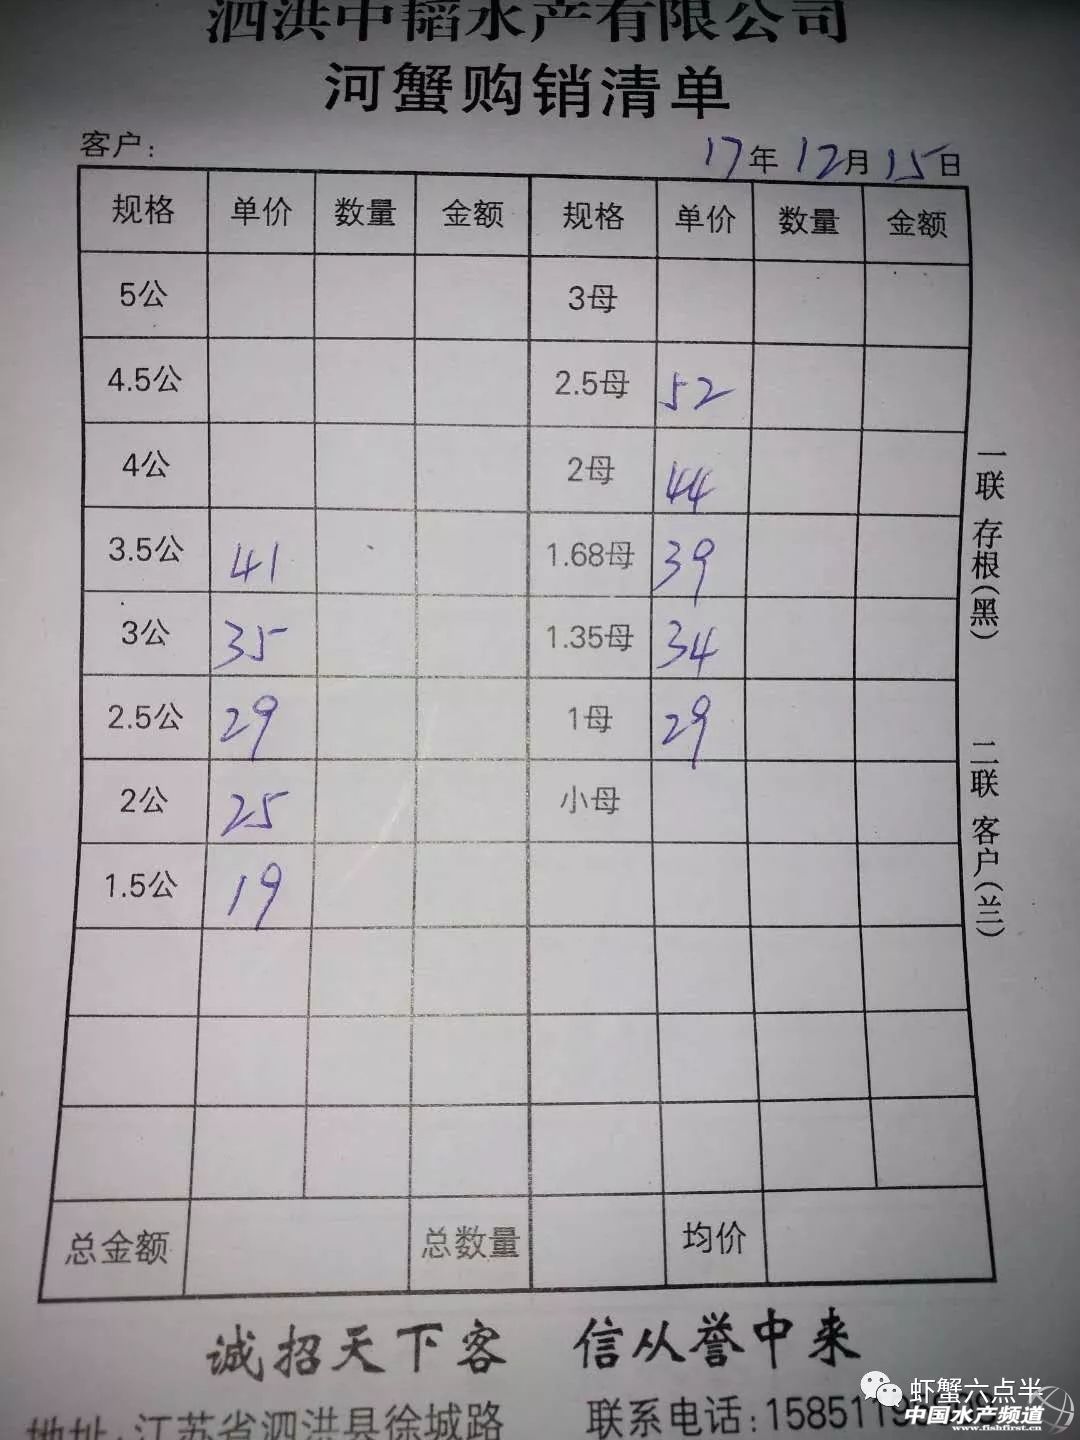 泗洪中韬水产有限公司
河蟹购销清单
客户: 17年12月15日
规格 单价 数量 金额 规格 单价 数量 金额
5公 3母
4.5公 2.5母 52
4公 2母 44
3.5公 41 1.68母 39
3公 35 1.35母 34
2.5公 29 1母 29
2公 25 小母
1.5公 19
总金额 总数量 均价
一联 存根(黑)
二联 客户(兰)
诚招天下客 信从誉中来
地址:江苏省泗洪县徐城路 联系电话:158511
虾蟹六点半
中国水产频道
www.fishfirst.cn